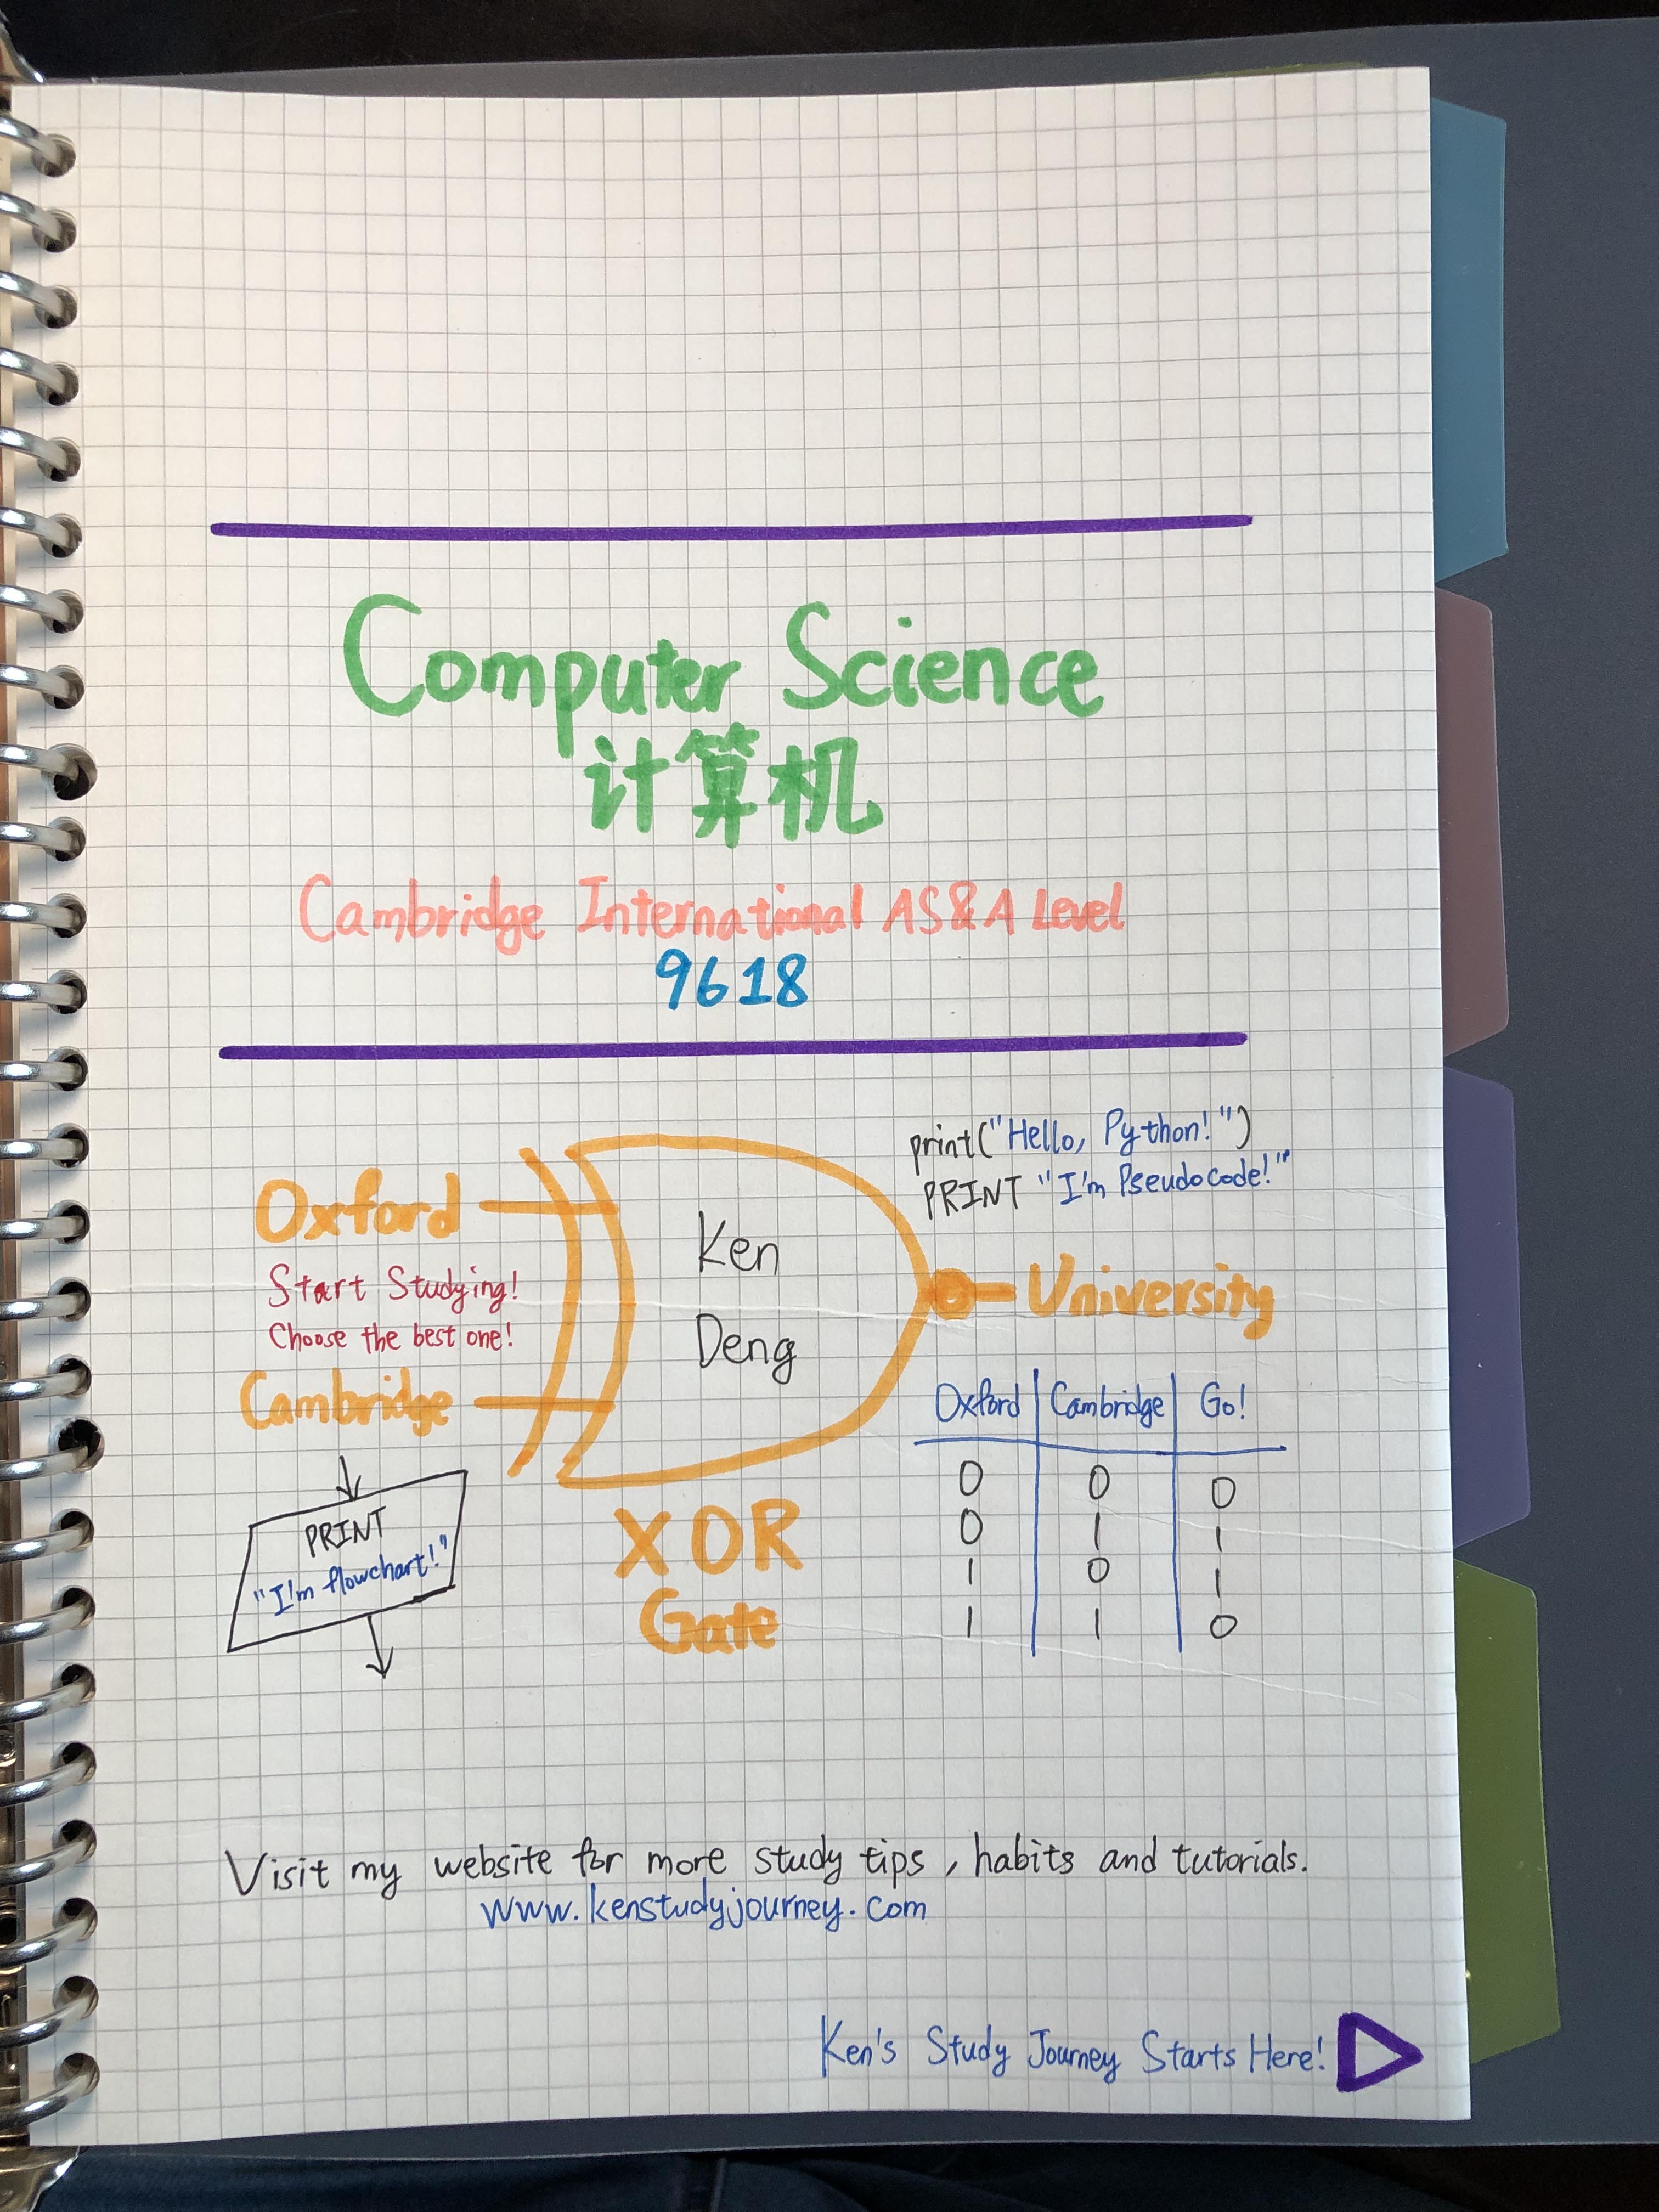 Computer Science
计算机
Cambridge International AS&A Level
9618
print("Hello, Python!")
PRINT "I'm Pseudocode!"
Oxford
Start Studying!
Choose the best one!
Cambridge
Ken
Deng
University
XOR
Gate
PRINT
"I'm flowchart!"
Oxford Cambridge Go!
0 0 0
0 1 1
1 0 1
1 1 0
Visit my website for more study tips, habits and tutorials.
www.kenstudyjourney.com
Ken's Study Journey Starts Here!